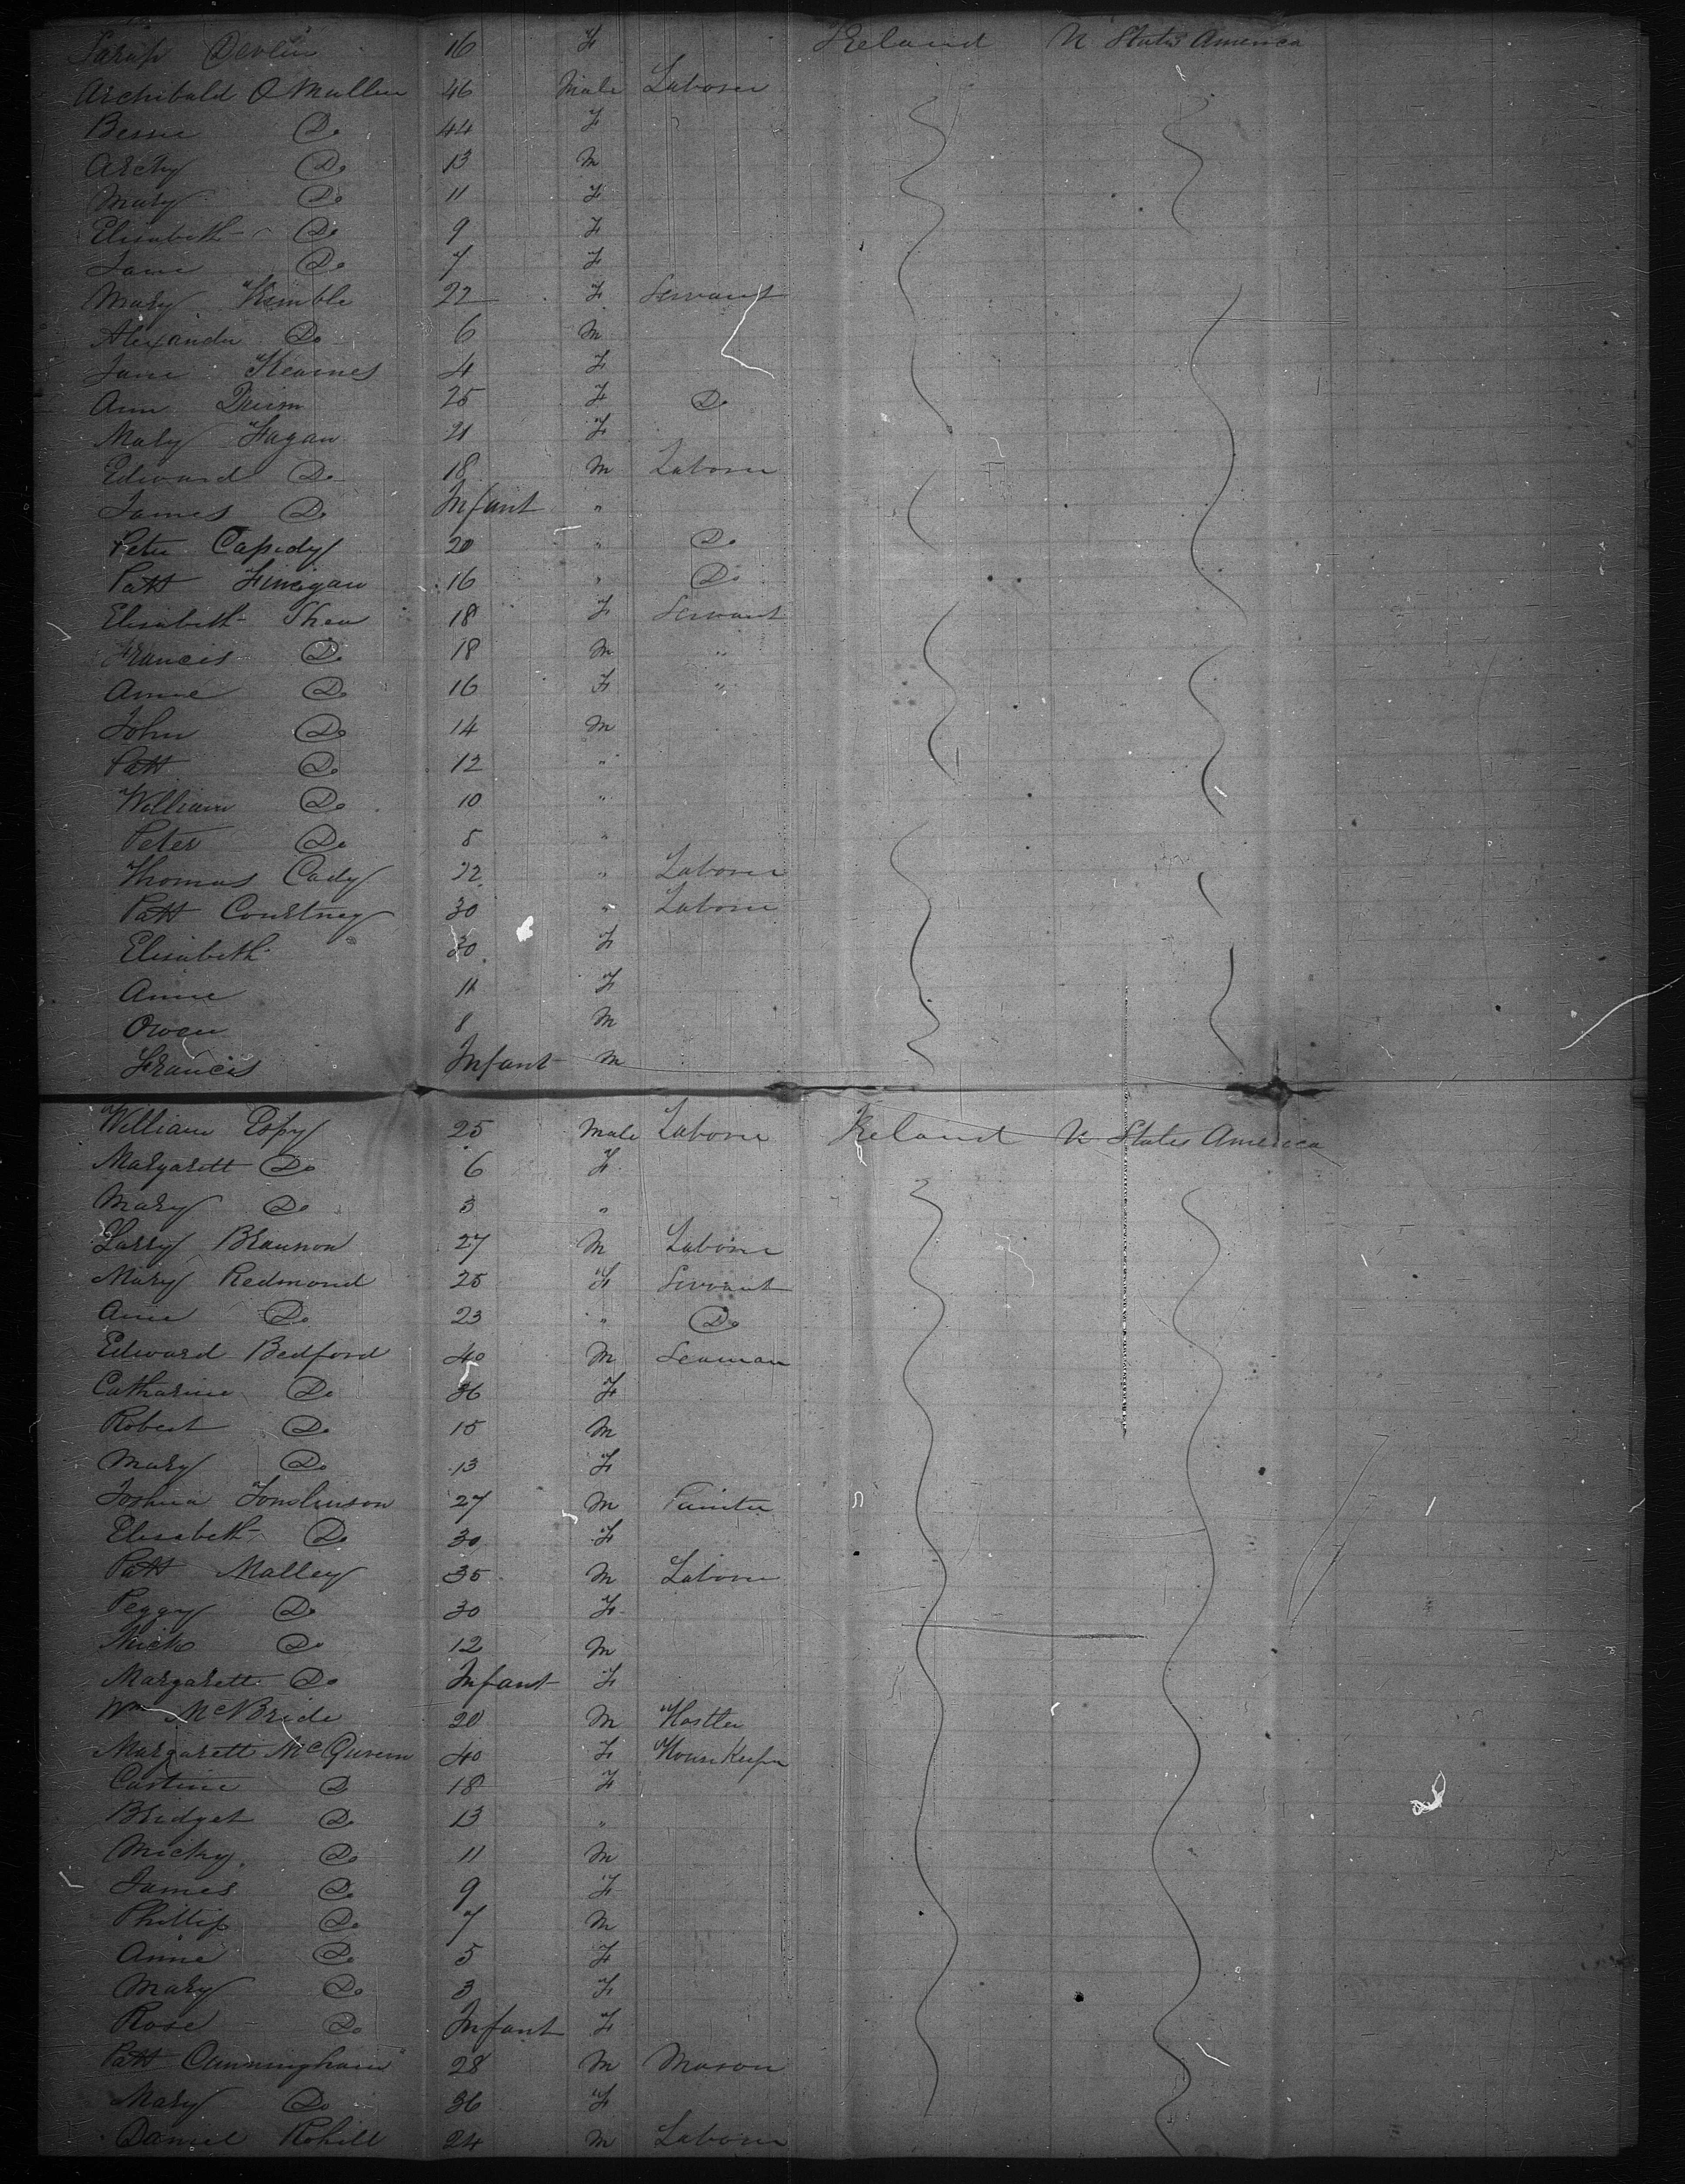 Sarah Devlin 16 F Ireland U States America
Archibald O Mullen 46 Male Laborer
Bessie Do 44 F
Archy Do 13 M
Mary Do 11 F
Elisabeth Do 9 F
Jane Do 7 F
Mary Kimble 22 F Servant
Alexander Do 6 M
Jane Kearnes 4 F
Ann 25 F Do
Mary Fagan 21 F
Edward Do 18 M Laborer
James Do Infant "
Peter Cassidy 20 " Do
Patt Finigan 16 " Do
Elisabeth Shea 18 F Servant
Francis Do 18 M "
Anne Do 16 F "
John Do 14 M
Patt Do 12 "
William Do 10 "
Peter Do 8 "
Thomas Cady 22 " Laborer
Patt Courtney 30 " Laborer
Elisabeth 30 F
Anne 11 F
Owen 8 M
Francis Infant M
William Espy 25 Male Laborer Ireland U States America
Margarett Do 6 F
Mary Do 3 "
Larry Brannon 27 M Laborer
Mary Redmond 25 F Servant
Ann Do 23 " Do
Edward Bedford 40 M Seaman
Catharine Do 36 F
Robert Do 15 M
Mary Do 13 F
Joshua Tomlinson 27 M Painter
Elisabeth Do 30 F
Patt Malley 35 M Laborer
Peggy Do 30 F
Mick Do 12 M
Margarett Do Infant F
Wm McBride 20 M Hostler
Margarett McGuvern 40 F House Keeper
Castine Do 18 F
Bridget Do 13 "
Micky Do 11 M
James Do 9 F
Phillip Do 7 M
Anne Do 5 F
Mary Do 3 F
Rose Do Infant F
Patt Cunningham 28 M Mason
Mary Do 36 F
Daniel Rohill 24 M Laborer